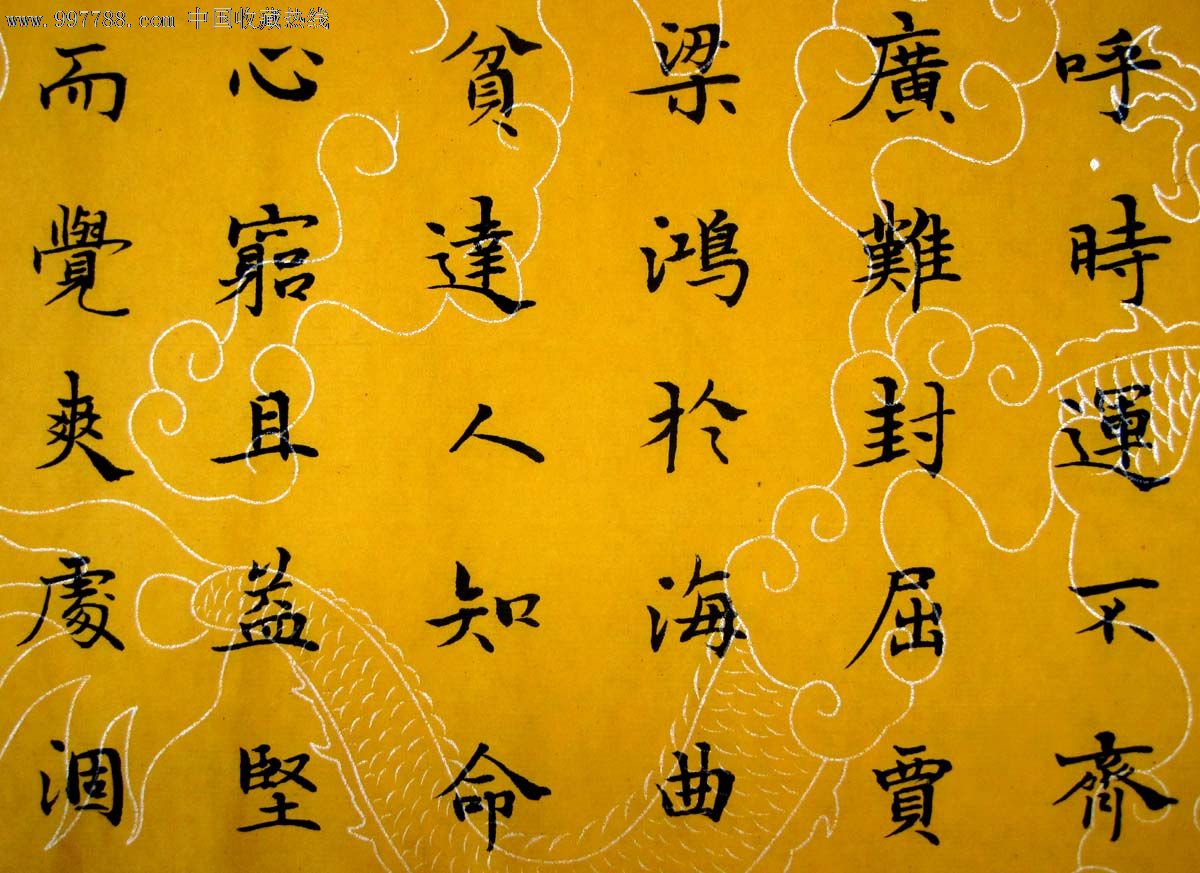 www.997788.com 中国收藏热线
呼時運不齊
廣難封屈賈
梁鴻於海曲
貧達人知命
心窮且益堅
而覺爽處涸